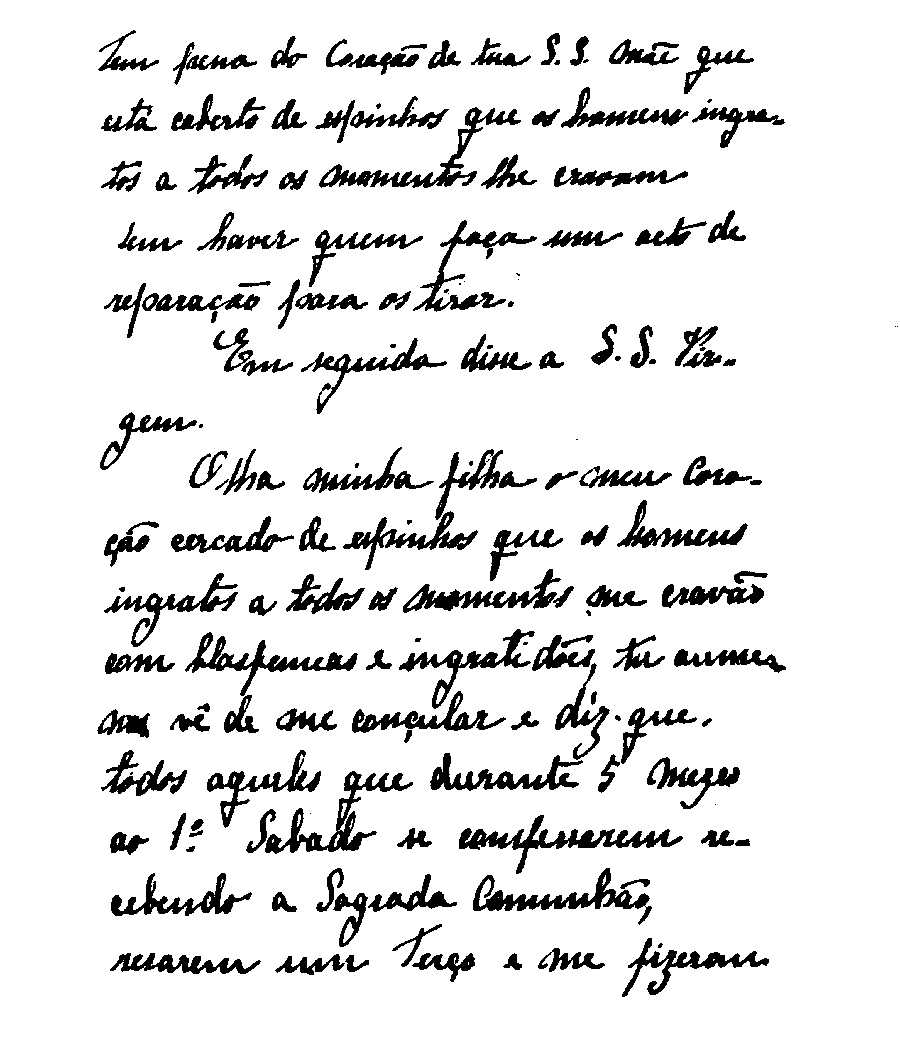 Tem pena do Coração de tua S.S. Mãe que
está coberto de espinhos que os homens ingra-
tos a todos os momentos lhe cravam
sem haver quem faça um acto de
reparação para os tirar.
Em seguida disse a S.S. Vir-
gem.
Olha minha filha o meu Cora-
ção cercado de espinhos que os homens
ingratos a todos os momentos me cravão
com blasfemeas e ingratidões, tu ao menos
vê de me conçular e diz que,
todos aqueles que durante 5 mezes
ao 1º Sabado se comfessarem re-
cebendo a Sagrada Comunhão,
resarem um Terço e me fizeram